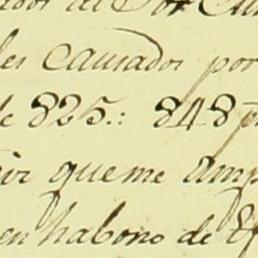 de Dor
les causados por
de 825.: 848 p
que me amp
en habono de